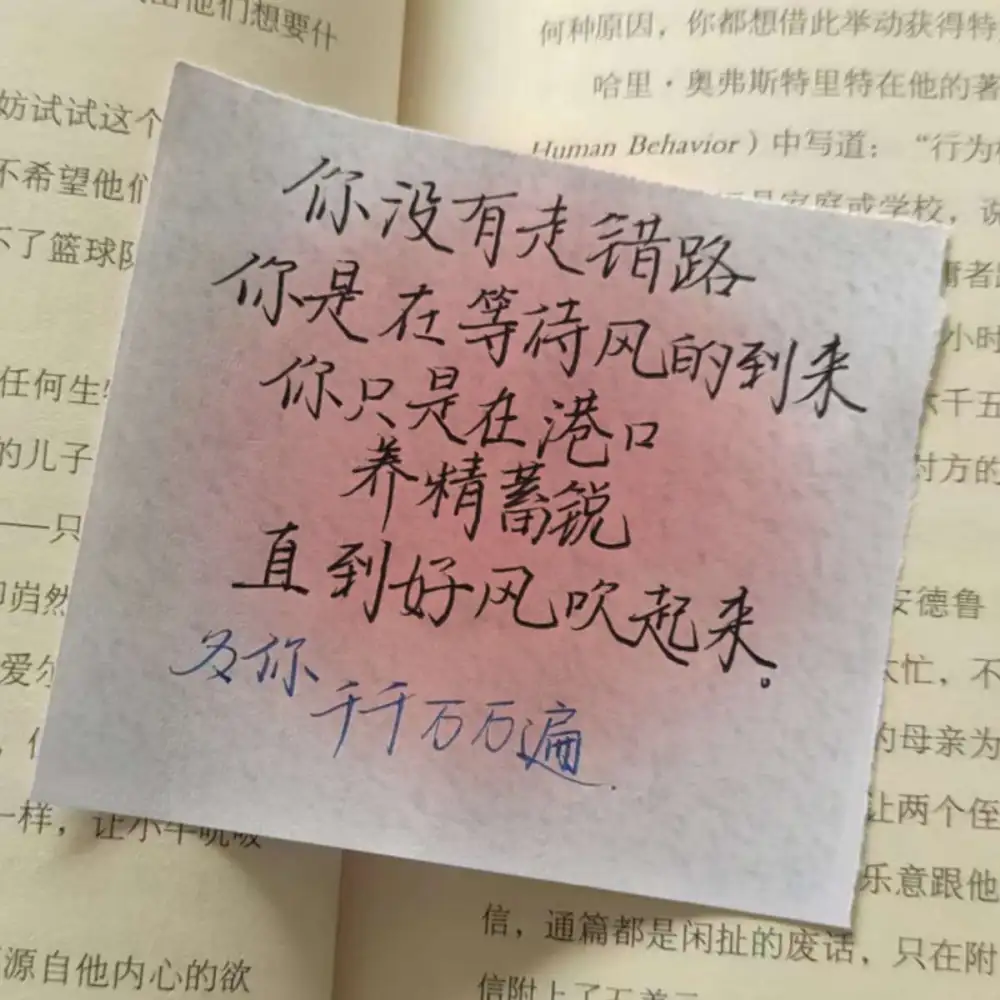 出他们想要什
妨试试这个
不希望他们
不了篮球队
任何生
的儿子
——只
岿然
爱尔
一样，让小牛吮吸
源自他内心的欲
你没有走错路
你是在等待风的到来
你只是在港口
养精蓄锐
直到好风吹起来。
为你
千千万万遍
何种原因，你都想借此举动获得特
哈里·奥弗斯特里特在他的著
Human Behavior）中写道：“行为
家庭或学校，说
小时
千五
对方的
安德鲁
太忙，不
的母亲为
让两个侄
乐意跟他
信，通篇都是闲扯的废话，只在附
信附上了五美元